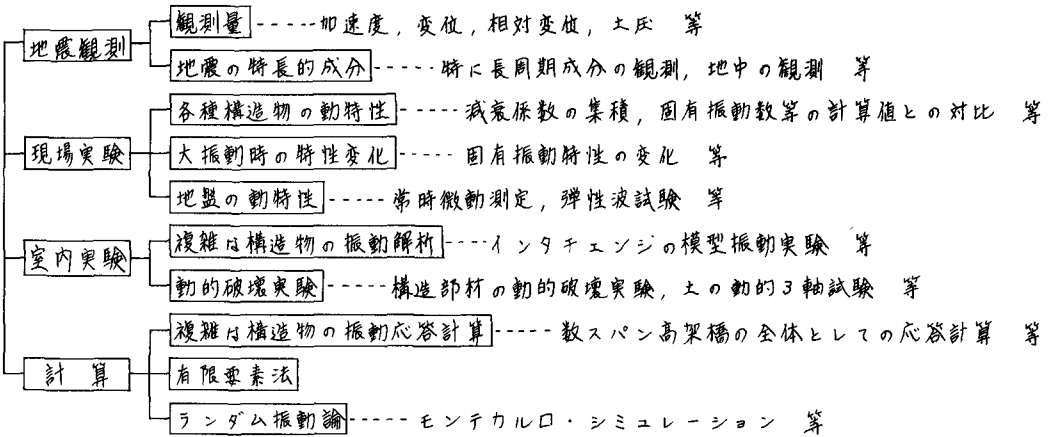 地震観測
観測量-----加速度, 変位, 相対変位, 土圧 等
地震の特長的成分-----特に長周期成分の観測, 地中の観測 等
現場実験
各種構造物の動特性-----減衰係数の集積, 固有振動数等の計算値との対比 等
大振動時の特性変化-----固有振動特性の変化 等
地盤の動特性-----常時微動測定, 弾性波試験 等
室内実験
複雑な構造物の振動解析----インタチェンジの模型振動実験 等
動的破壊実験-----構造部材の動的破壊実験, 土の動的3軸試験 等
計算
複雑な構造物の振動応答計算-----数スパン高架橋の全体としての応答計算 等
有限要素法
ランダム振動論-----モンテカルロ・シミュレーション 等